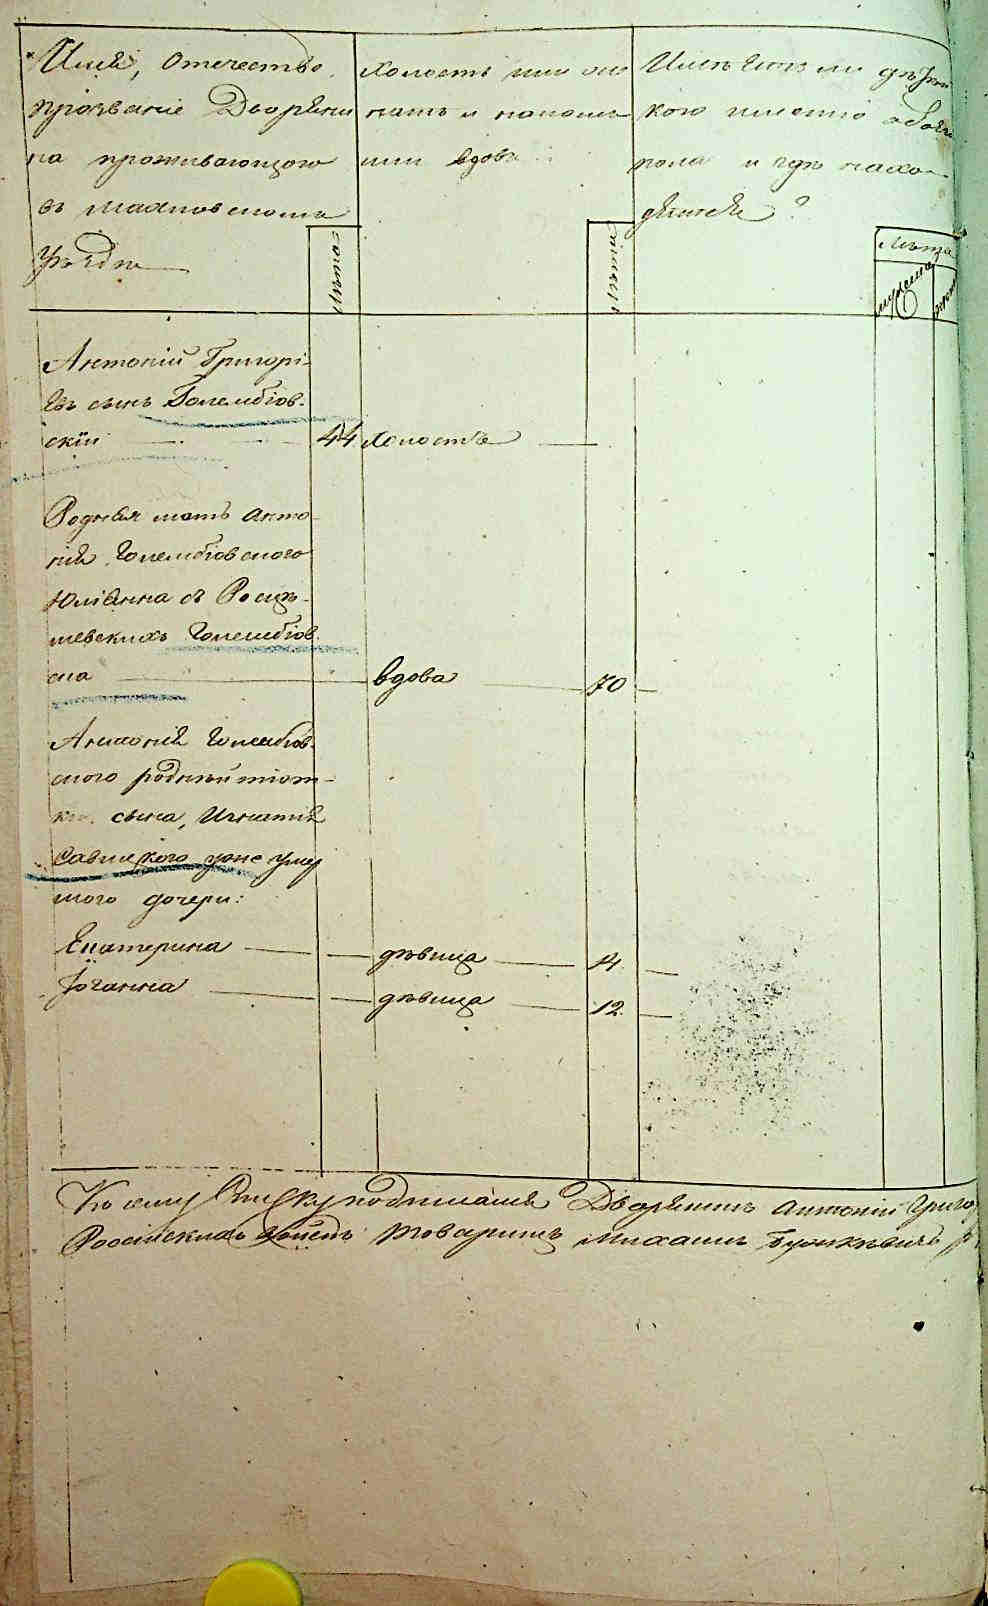 Имя, Отечество,
прозвание Дворяни
на проживающого
въ Махновскомъ
Уѣздѣ
лѣта
Холостъ или же
натъ и на комъ
или вдовъ
лѣта
Имѣетъ ли дѣ
кого имѣнiо обоего
пола и гдѣ нахо-
дятся?
Лѣта
мужеска
женска
Антонiй Григорi-
евъ сынъ Голембiов-
скiи 44 холостъ
Родная мать Анто-
нiя Голембiовского
Юлiанна съ
шевскихъ Голембiов
ска вдова 70
Антонiя Голембiов-
ского родный тiот-
ки сына, Игнатiя
Савицкого уже умер
шого дочери:
Екатерина дѣвица 14
Iоганна дѣвица 12
Къ сему Списку подписался Дворянинъ Антонiй Григо
Россiйскихъ Войскъ Товарищъ Михаилъ